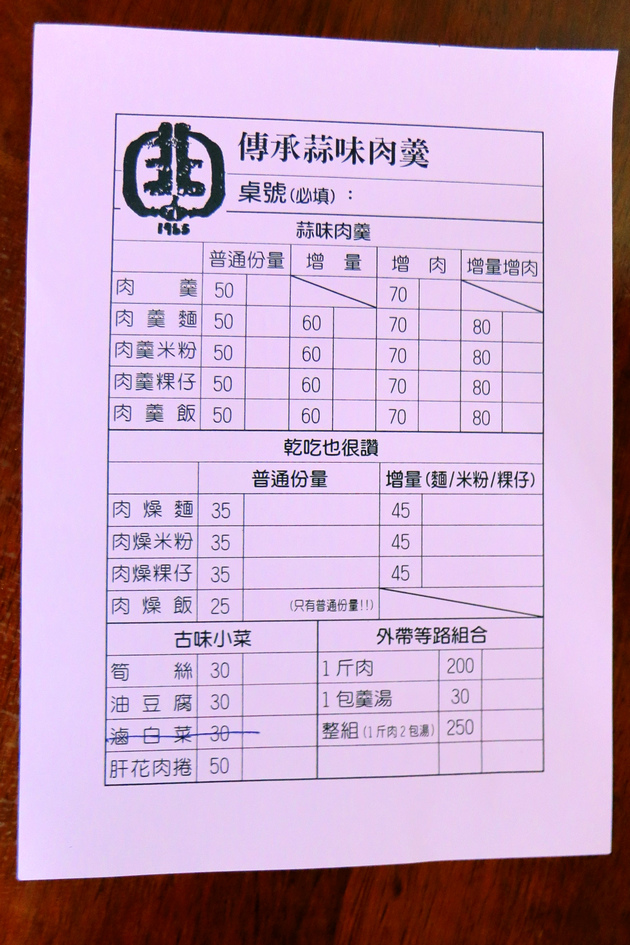 1965
傳承蒜味肉羹
桌號(必填)：
蒜味肉羹
普通份量 增量 增肉 增量增肉
肉羹 50 70
肉羹麵 50 60 70 80
肉羹米粉 50 60 70 80
肉羹粿仔 50 60 70 80
肉羹飯 50 60 70 80
乾吃也很讚
普通份量 增量(麵/米粉/粿仔)
肉燥麵 35 45
肉燥米粉 35 45
肉燥粿仔 35 45
肉燥飯 25 (只有普通份量!!)
古味小菜 外帶等路組合
筍絲 30 1斤肉 200
油豆腐 30 1包羹湯 30
滷白菜 30 整組(1斤肉2包湯) 250
肝花肉捲 50